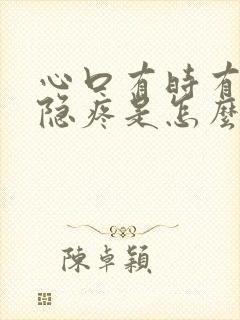 心口有时有
隐疼是怎麼
陳卓穎